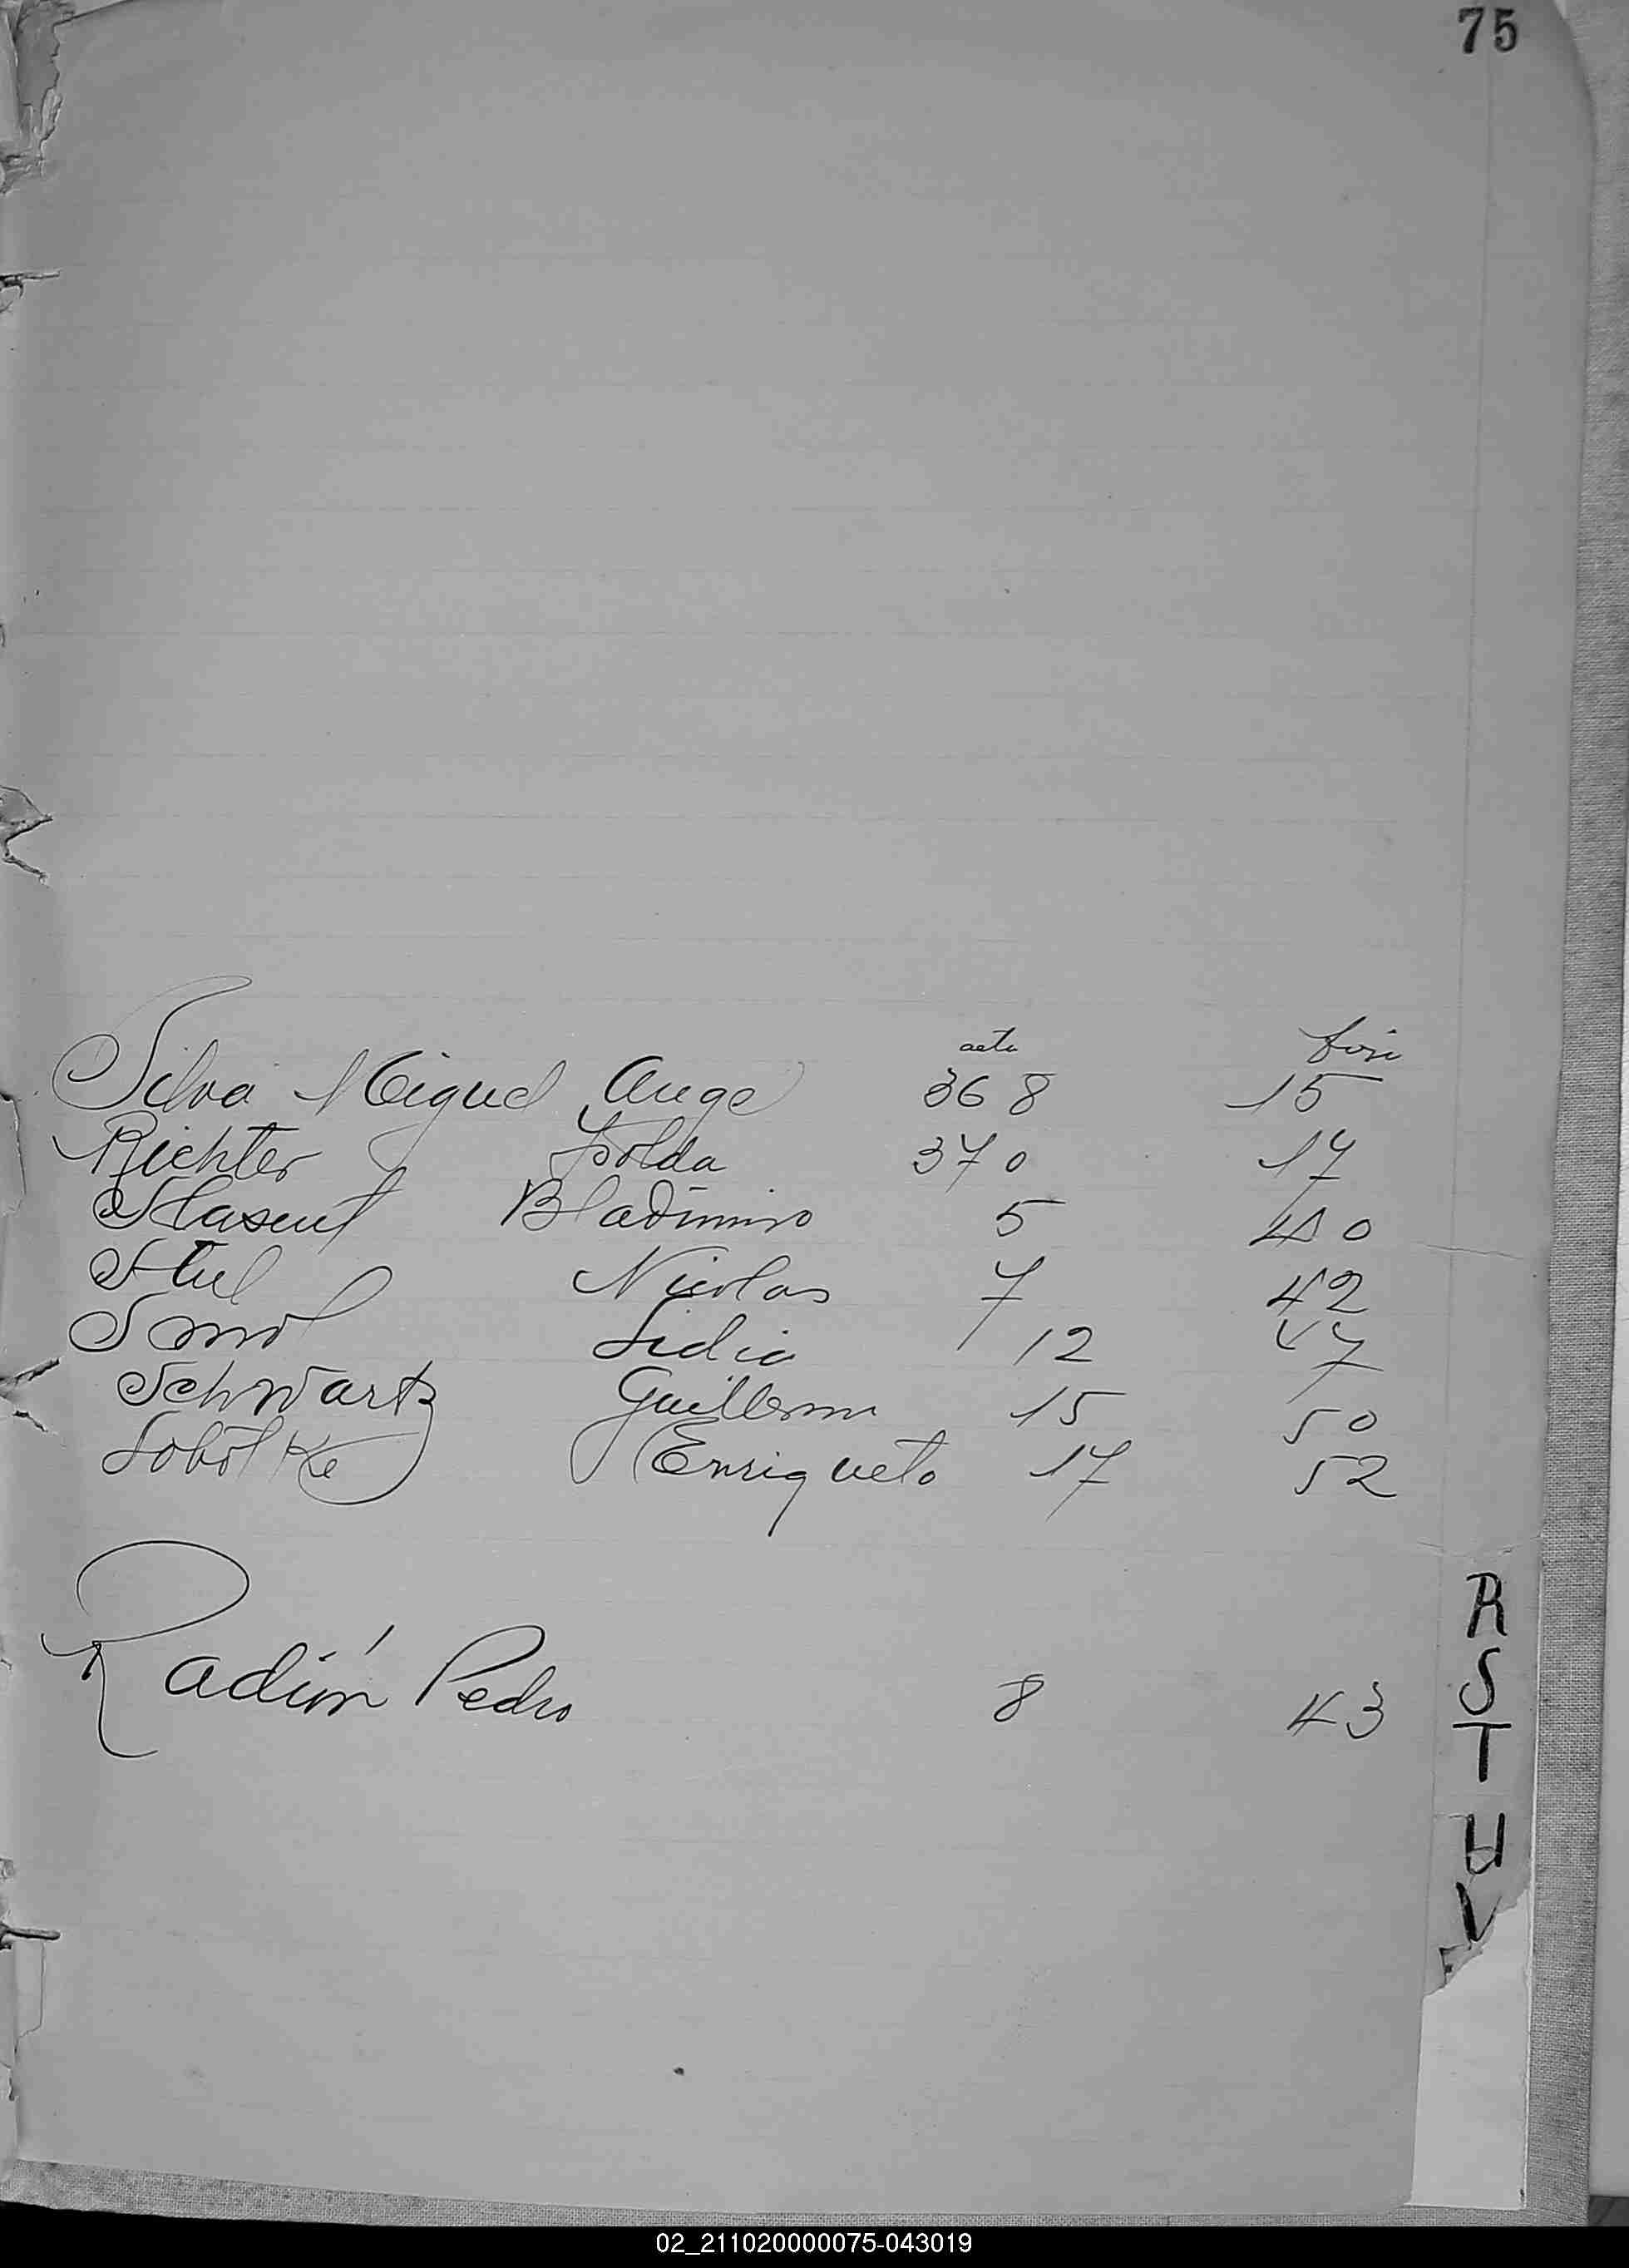 75
acta
Silva Miguel Angel 368 15
Richter Isolda 370 17
Bladimiro 5 40
Stul Nicolas 7 42
Lidia 12 47
Schwartz Guillermo 15 50
Enriqueta 17 52
Radión Pedro 8 43
R
S
T
U
V
02_211020000075-043019